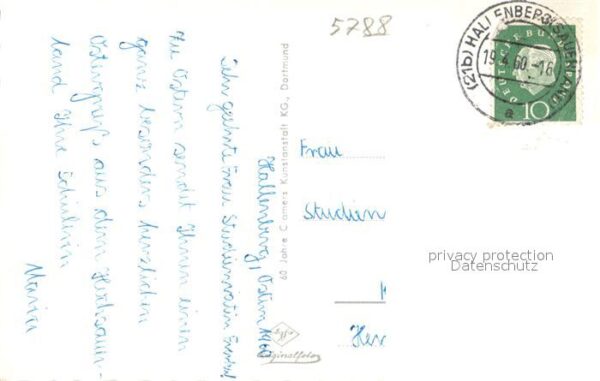 5788
(21b) HALLENBERG (SAUERLAND)
19.4.60.-16
a
DEUTSCHE BUNDESPOST
10
Hallenberg, Ostern 1960
Sehr geehrte Frau Studienrätin
Zu Ostern sendet Ihnen einen
ganz besonders herzlichen
Ostergruß aus dem Hochsauer-
land Ihre Schülerin
Maria
60 Jahre Cramers Kunstanstalt KG., Dortmund
Frau
Studien
Her
Agfa
Originalfoto
privacy protection
Datenschutz